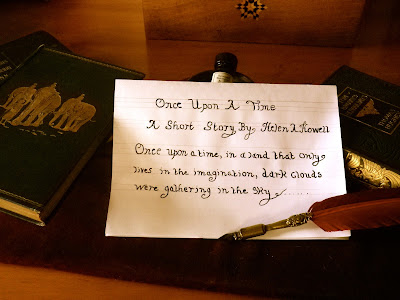 Once Upon A Time
A Short Story By Helen A Howell
Once upon a time, in a land that only
lives in the imagination, dark clouds
were gathering in the sky.......